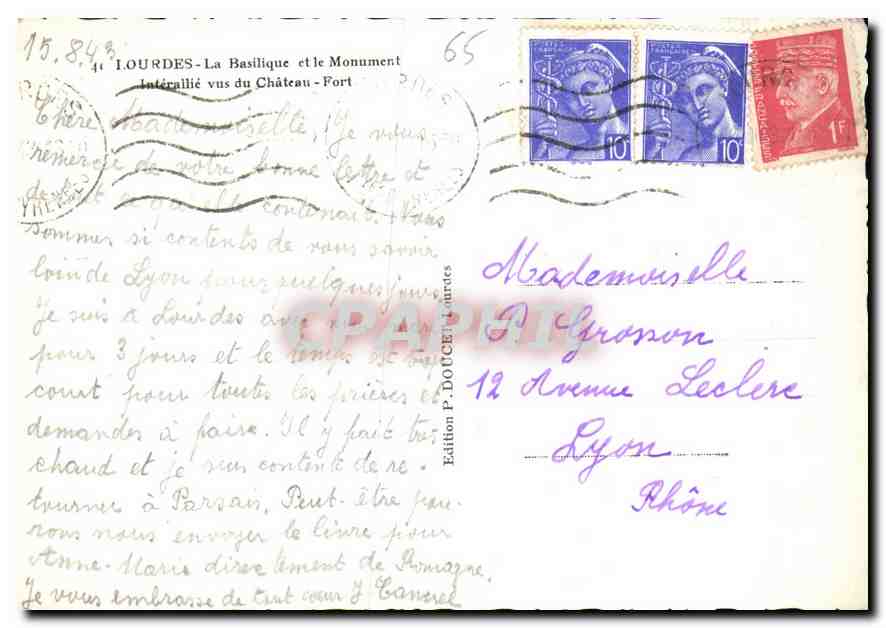 15.8.43
65
41 LOURDES - La Basilique et le Monument
Interallié vus du Château-Fort
Chère Mademoiselle, Je vous
remercie de votre bonne lettre et
de tout ce qu'elle contenait. Nous
sommes si contents de vous savoir
loin de Lyon pour quelques jours.
Je suis à Lourdes avec ma mère
pour 3 jours et le temps est trop
court pour toutes les prières et
demandes à faire. Il y fait très
chaud et je suis contente de re-
tourner à Parsais, Peut-être pou-
rons nous envoyer le livre pour
Anne-Marie directement de Romagne.
Je vous embrasse de tout cœur J
Edition P. DOUCET Lourdes
POSTES FRANÇAISES
10c
POSTES FRANÇAISES
10c
1F
Mademoiselle
P. Grosson
12 Avenue Leclerc
Lyon
Rhône
CPAPHIL